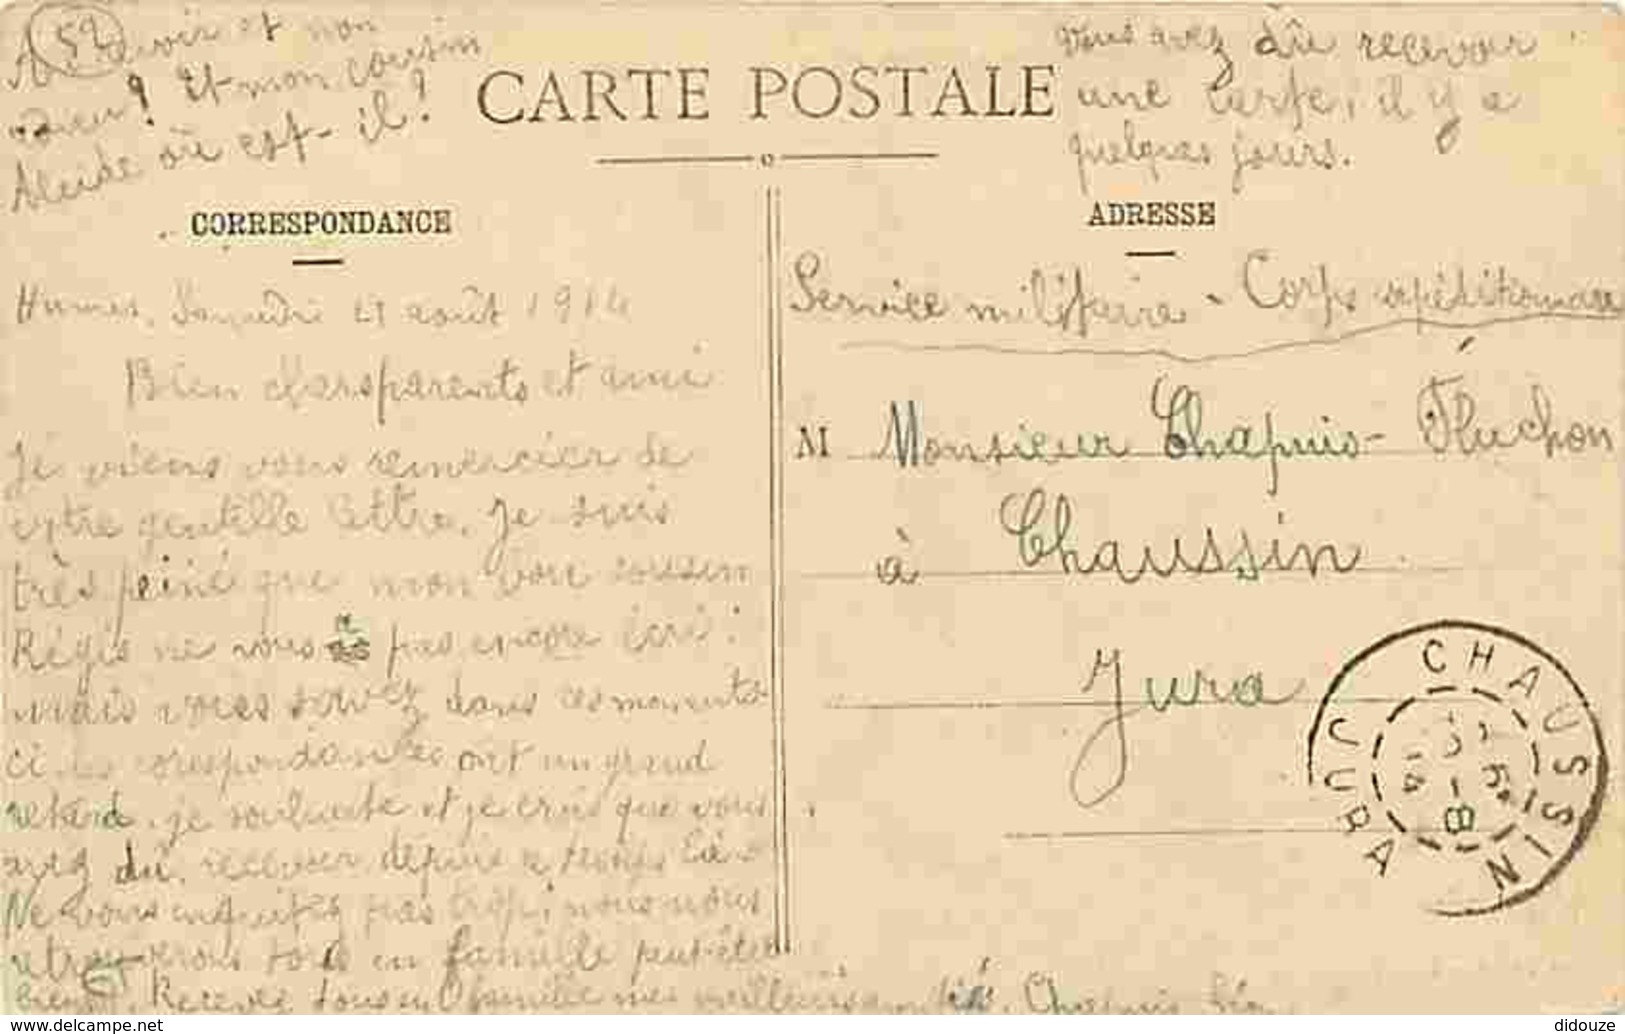 52
Au revoir et non
adieu ! Et mon cousin
où est-il ?
vous avez dû recevoir
une carte, il y a
quelques jours.
CARTE POSTALE
CORRESPONDANCE
ADRESSE
Humes, Samedi août 1914
Bien chers parents et ami
Je viens vous remercier de
votre gentille lettre. Je suis
très peiné que mon cousin
Régis ne vous pas encore écri :
mais vous savez dans ces moments
ci les corespondances ont un grand
retard. je souhaite et je crois que vous
avez dû recevoir depuis ce temps là
Ne vous inquitez pas trop, nous nous
retrouverons tous en famille peut-être
bientôt. Recevez tous en famille mes meilleurs amitié. Chapuis Léon
Service militaire - Corps expéditionnaire
M Monsieur Chapuis-Fluchon
à Chaussin
Jura
CHAUSSIN
JURA
didouze